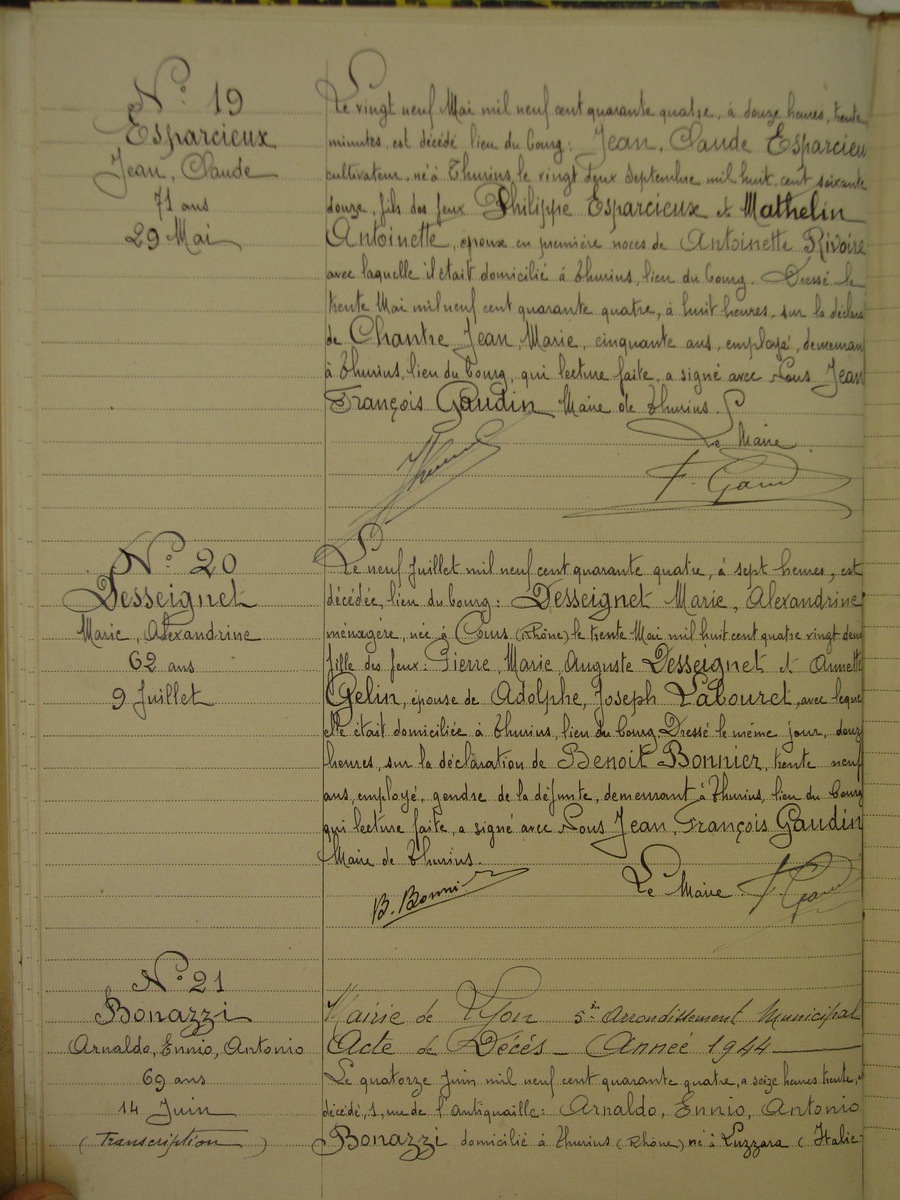 N° 19
Esparcieux
Jean, Claude
71 ans
29 Mai
Le vingt neuf Mai mil neuf cent quarante quatre, à douze heures, trente
minutes, est décédé lieu du Bourg: Jean, Claude Esparcieu
cultivateur, né à Thurins, le vingt deux Septembre mil huit cent soixante
douze, fils des feux Philippe Esparcieux et Mathelin
Antoinette, époux en première noces de Antoinette Rivoire
avec laquelle il était domicilié à Thurins, lieu du Bourg. Dressé le
trente Mai mil neuf cent quarante quatre, à huit heures, sur la déclara
de Chantre Jean Marie, cinquante ans, employé, demeuran
à Thurins, lieu du Bourg, qui lecture faite, a signé avec Nous Jean
François Gaudin Maire de Thurins.
Le Maire
N° 20
Desseignet
Marie, Alexandrine
62 ans
9 Juillet
Le neuf Juillet mil neuf cent quarante quatre, à sept heures, est
décédée, lieu du bourg: Desseignet Marie, Alexandrine
ménagère, née à Cours (Rhône) le trente Mai mil huit cent quatre vingt deux
fille des feux: Pierre, Marie, Auguste Desseignet et Annette
Gelin, épouse de Adolphe, Joseph Labouret, avec leque
elle était domiciliée à Thurins, lieu du Bourg. Dressé le même jour, douz
heures, sur la déclaration de Benoit Bonnier, trente neuf
ans, employé, gendre de la défunte, demeurant à Thurins, lieu du Bourg
qui lecture faite, a signé avec Nous Jean, François Gaudin
Maire de Thurins.
B. Bonnier
Le Maire
N° 21
Bonazzi
Arnaldo, Ennio, Antonio
69 ans
14 Juin
(Transcription)
Mairie de Lyon 5è Arrondissement Municipal
Acte de Décés - Année 1944
Le quatorze Juin mil neuf cent quarante quatre, a seize heures trente,
décédé, 1, rue de l'antiquaille: Arnaldo, Ennio, Antonio
Bonazzi domicilié à Thurins (Rhône) né à Luzzara (Italie